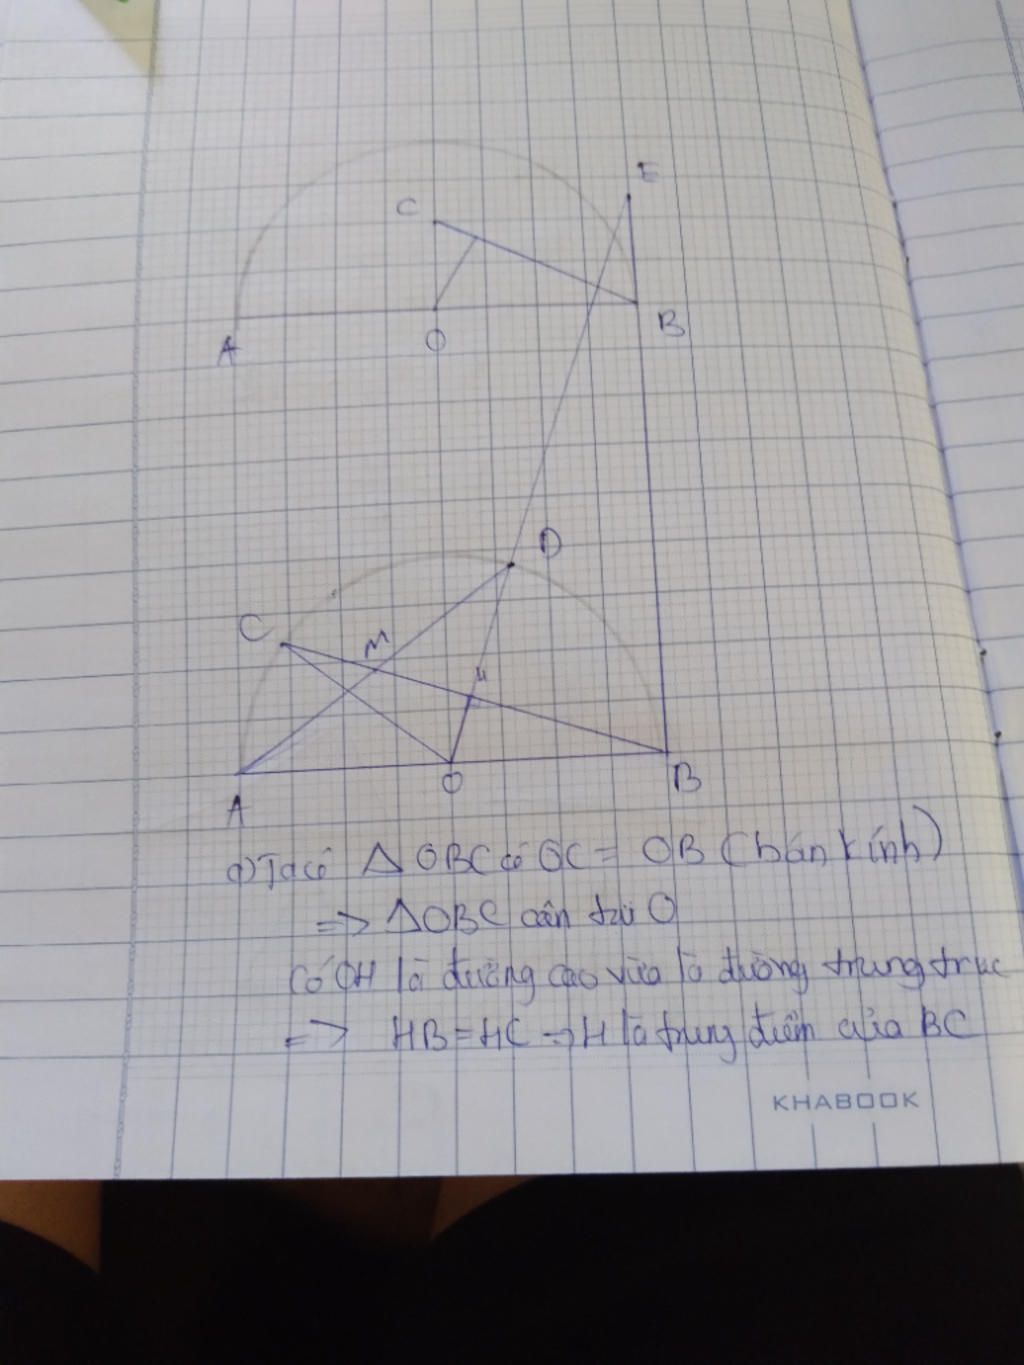 E
C
A
O
B
D
C
M
H
A
O
B
a) Ta có △OBC có OC = OB (bán kính)
=> △OBC cân tại O
Có OH là đường cao vừa là đường trung trực
=> HB = HC -> H là trung điểm của BC
KHABOOK